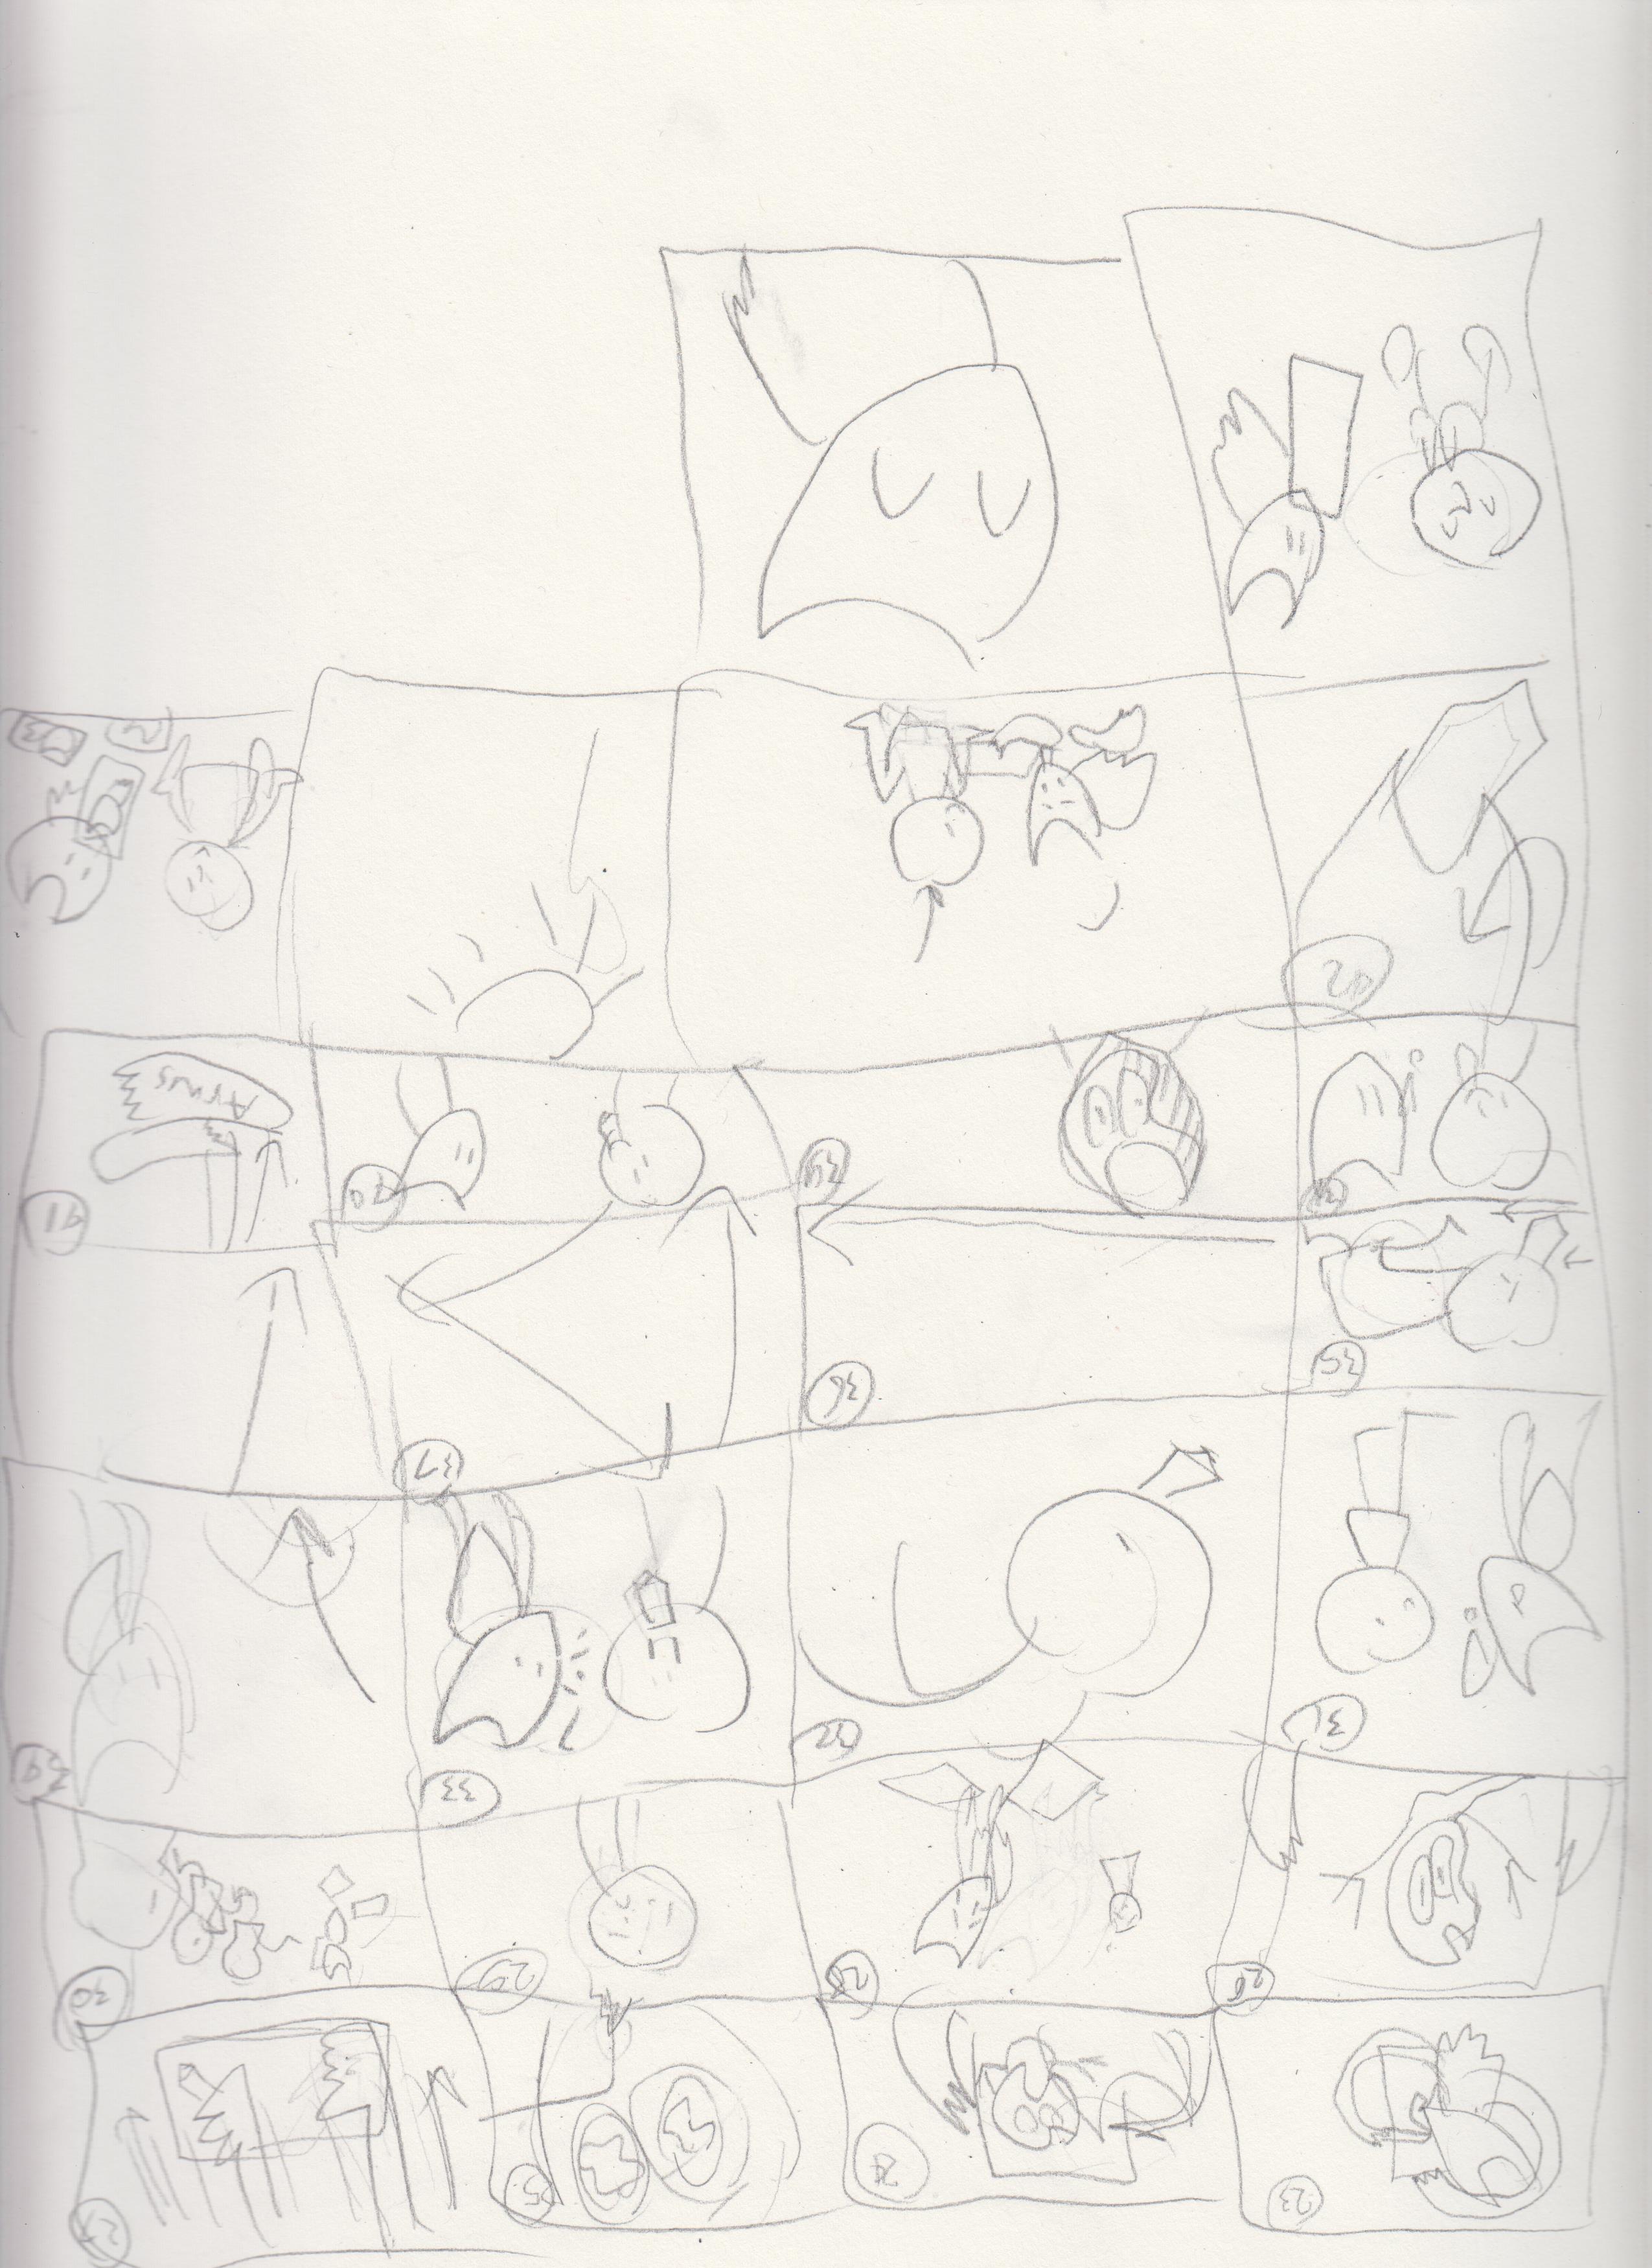 23
24
25
27
26
28
29
30
31
!
32
33
?
34
35
36
37
39
40
41
Arms
42